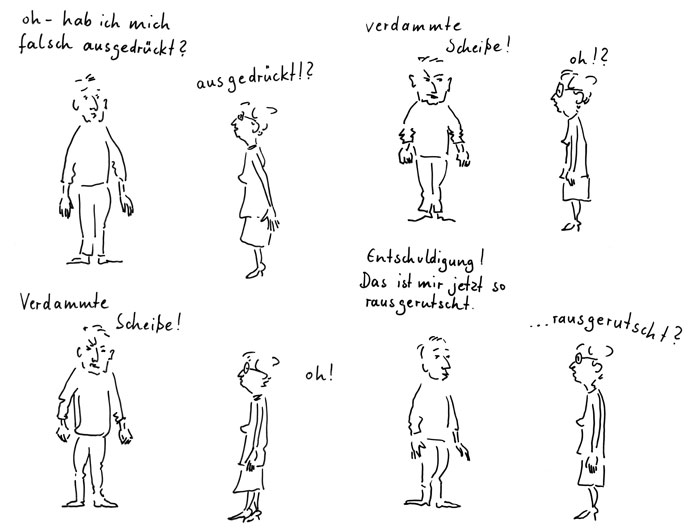 oh - hab ich mich
falsch ausgedrückt?
ausgedrückt!?
verdammte
Scheiße!
oh!?
Verdammte
Scheiße!
oh!
Entschuldigung!
Das ist mir jetzt so
rausgerutscht.
...rausgerutscht?